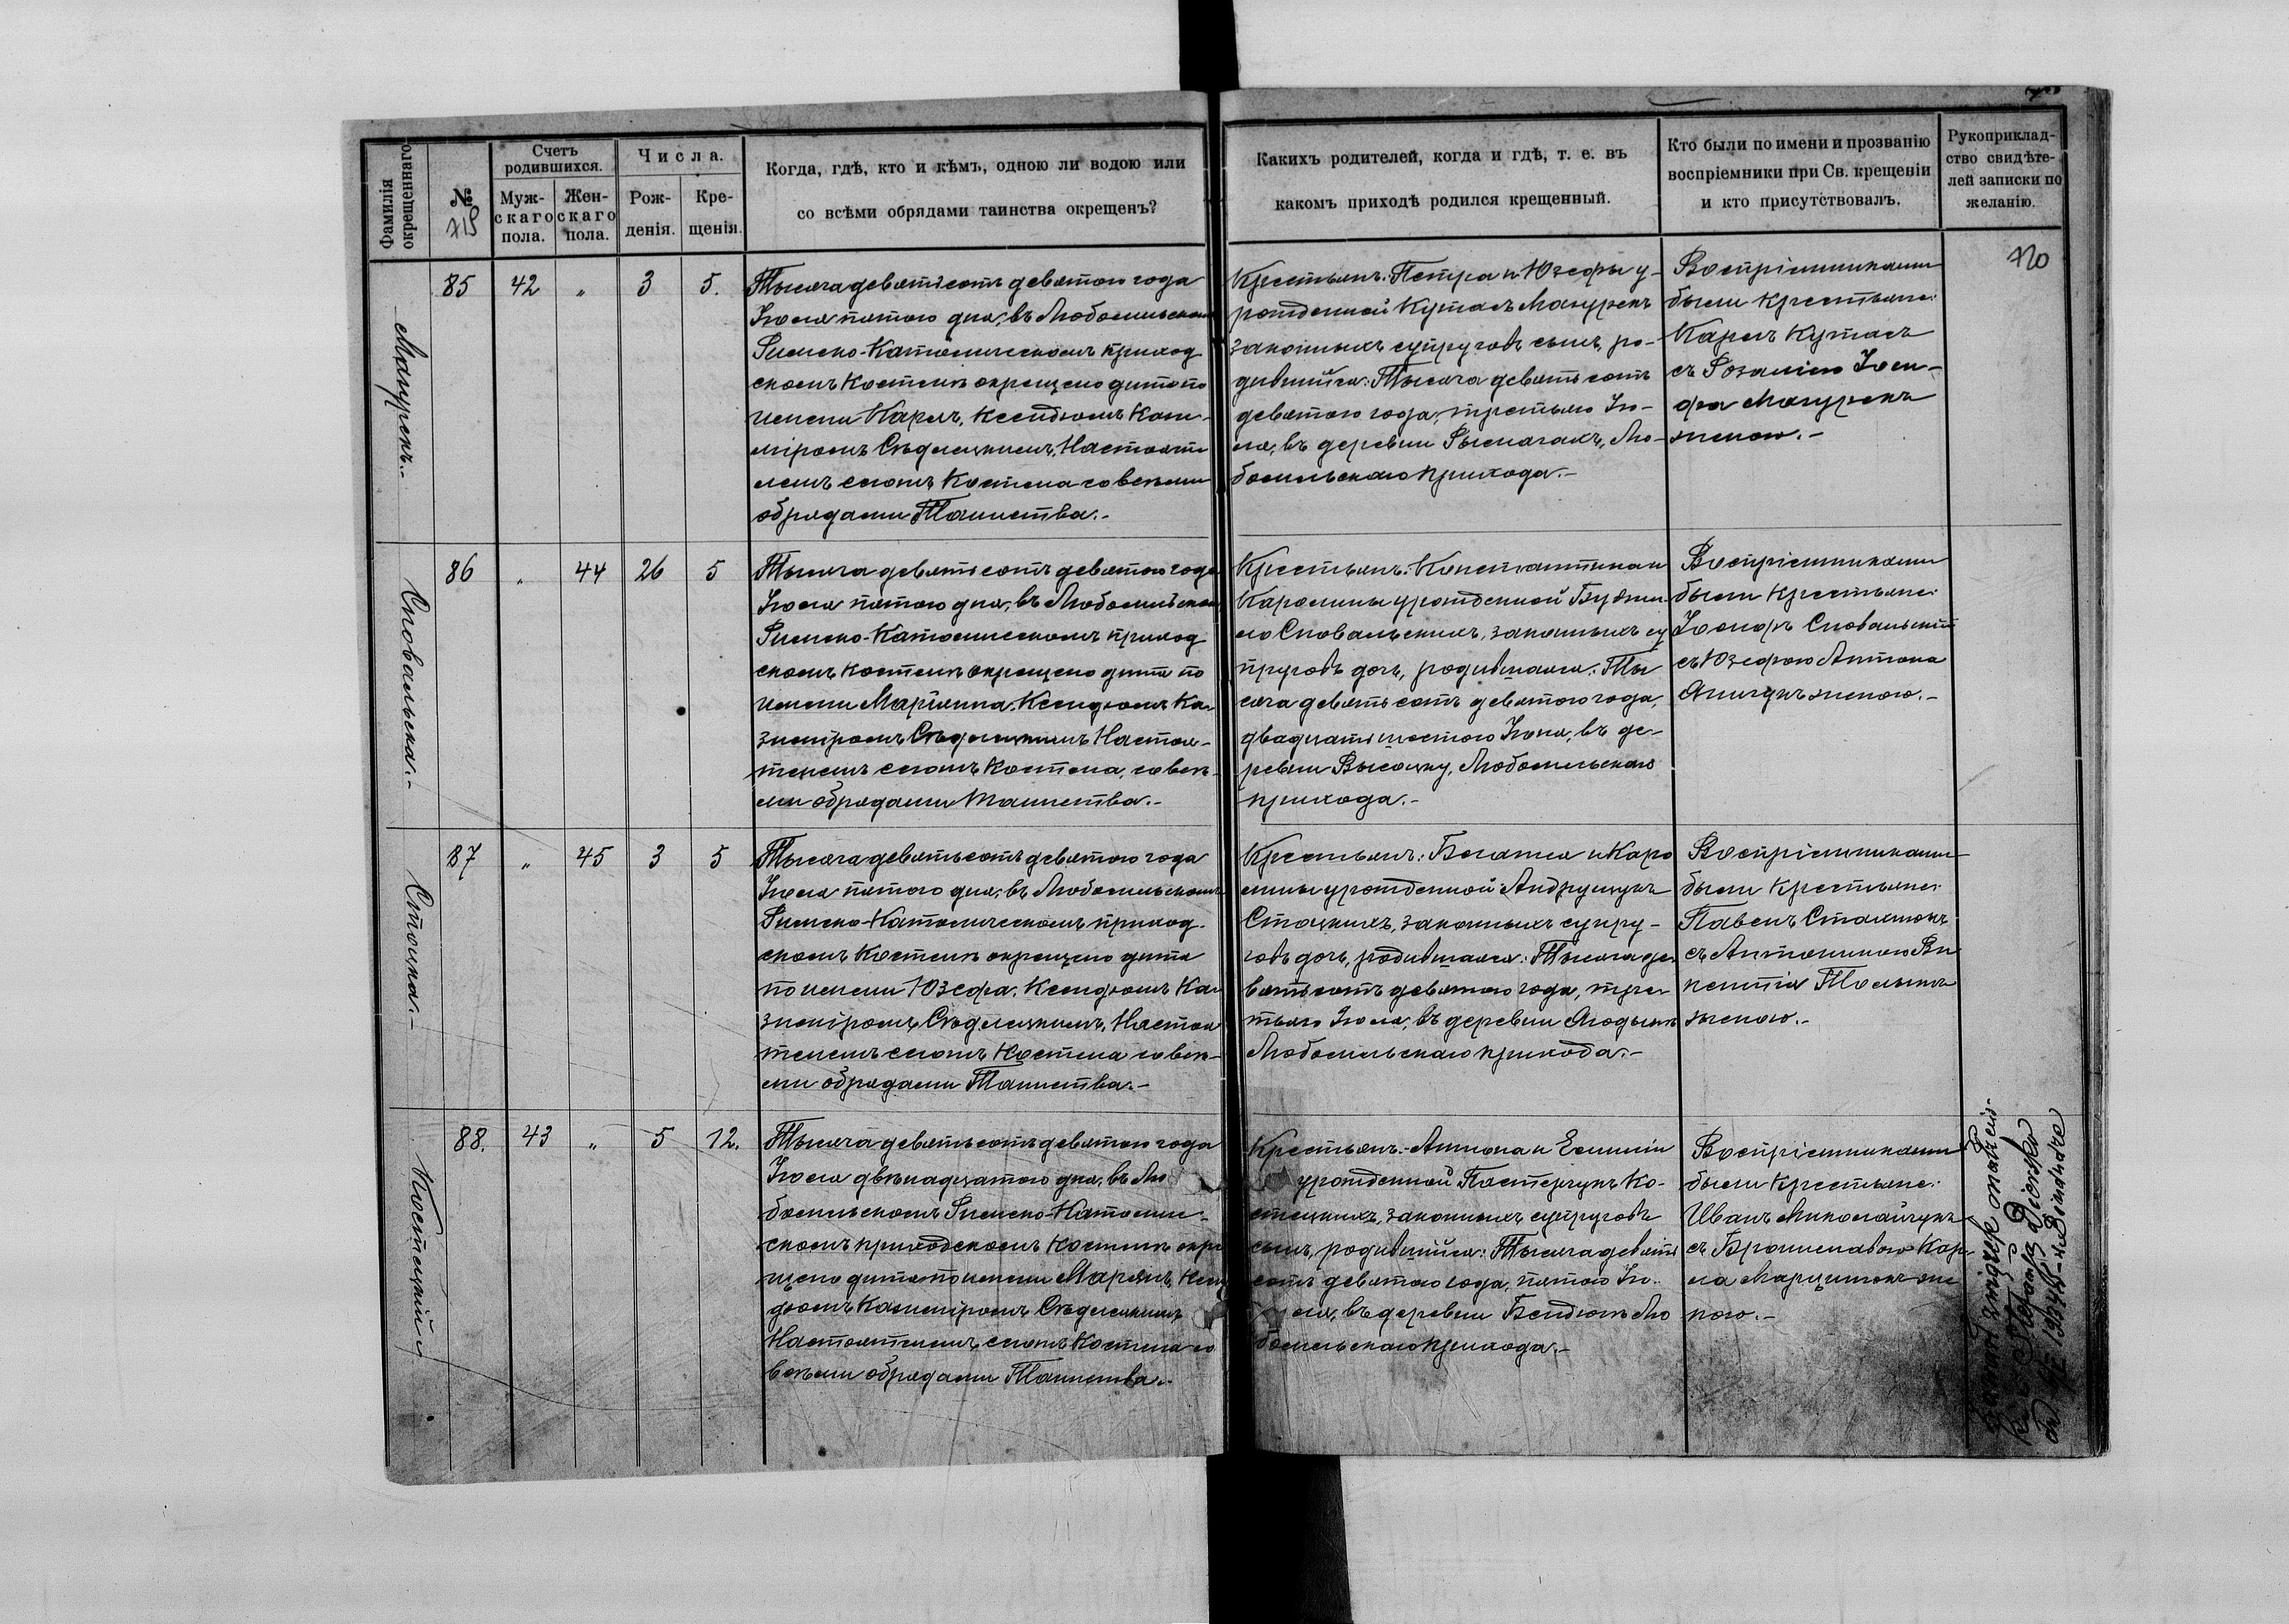 Фамилія окрещеннаго.
№
Счетъ родившихся.
Муж-скаго пола.
Жен-скаго пола.
Числа.
Рож-денія.
Кре-щенія.
Когда, гдѣ, кто и кѣмъ, одною ли водою или
со всѣми обрядами таинства окрещенъ?
Какихъ родителей, когда и гдѣ, т. е. въ
какомъ приходѣ родился крещенный.
Кто были по имени и прозванію
воспріемники при Св. крещеніи
и кто присутствовалъ.
Рукоприклад-
ство свидѣте-
лей записки по
желанію.
Мазурекъ.-
85
42
„
3
5.
Тысяча девятьсотъ девятого года
Іюля пятого дня, въ Любомльскомъ
Римско-Католическомъ приход
скомъ Костелѣ окрещено дитя по
имени Карлъ, Ксендзомъ Кази-
міромъ Сѣдлецкимъ, Настояте
лемъ сломъ Костела со всѣми
обрядами Таинства.-
Крестьянъ: Петра и Юзефы у-
рожденной Кутасъ Мазурекъ
законныхъ супруговъ сынъ, ро-
дившійся: Тысяча девятьсотъ
девятого года, третьяго Ію-
ля, въ деревни Рымачахъ, Лю-
бомльскаго прихода.-
Воспріемниками
были крестьяне:
Карлъ Кутасъ
съ Розаліею Іоси-
фа Мазурекъ
женою.-
Сковальска.-
86
„
44
26
5
Тысяча девятьсотъ девятого года
Іюля пятого дня, въ Любомльскомъ
Римско-Католическомъ приход
скомъ костелѣ окрещено дитя по
имени Маріанна, Ксендзомъ Ка-
зиміромъ Сѣдлецкимъ Настоя-
телемъ сломъ Костела, со всѣ-
ми обрядами таинства.-
Крестьянъ: Константина и
Каролины урожденной
Сковальскихъ, законныхъ су
пруговъ дочь, родившаяся: Ты
сяча девятьсотъ девятого года,
двадцать шестого Іюня, въ де-
ревни Высоцку, Любомльскаго
прихода.-
Воспріемниками
были крестьяне:
Іосифъ Сковальскій
съ Юзефою Антона
женою.-
Стоцка.-
87
„
45
3
5
Тысяча девятьсотъ девятого года
Іюля пятого дня, въ Любомльскомъ
Римско-Католическомъ приход-
скомъ Костелѣ окрещено дитя
по имени Юзефа, Ксендзомъ Ка-
зиміромъ Сѣдлецкимъ, Настоя
телемъ сломъ Костела со всѣ-
ми обрядами Таинства.-
Крестьянъ: и Каро
лины урожденной Андрущукъ
Стоцкихъ, законныхъ супру-
говъ дочь, родившаяся: Тысяча де-
вятьсотъ девятого года, тре-
тьяго Іюля, въ деревни Ягодынѣ
Любомльскаго прихода.-
Воспріемниками
были крестьяне:
Павелъ
съ Антониною Ви
кентія
женою.-
Костецкій
88.
43
„
5
12.
Тысяча девятьсотъ девятого года
Іюля двѣнадцатого дня, въ Лю
бомльскомъ Римско-Католиче-
скомъ приходскомъ Костелѣ окре
щено дитя по имени Марьянъ, Ксен
дзомъ Казиміромъ Сѣдлецкимъ
Настоятелемъ, сломъ Костела со
всѣми обрядами Таинства.-
Крестьянъ: Антона и Емиліи
урожденной Пастерчукъ Ко-
стецкихъ, законныхъ супруговъ
сынъ, родившійся: Тысяча девять
сотъ девятого года, пятого Ію-
ля, въ деревни Бендюгѣ Лю
бомльскаго прихода.-
Воспріемниками
были крестьяне:
Иванъ Миколайчукъ
съ Брониславою Кар-
ла Марцинюкъ же
ною.-